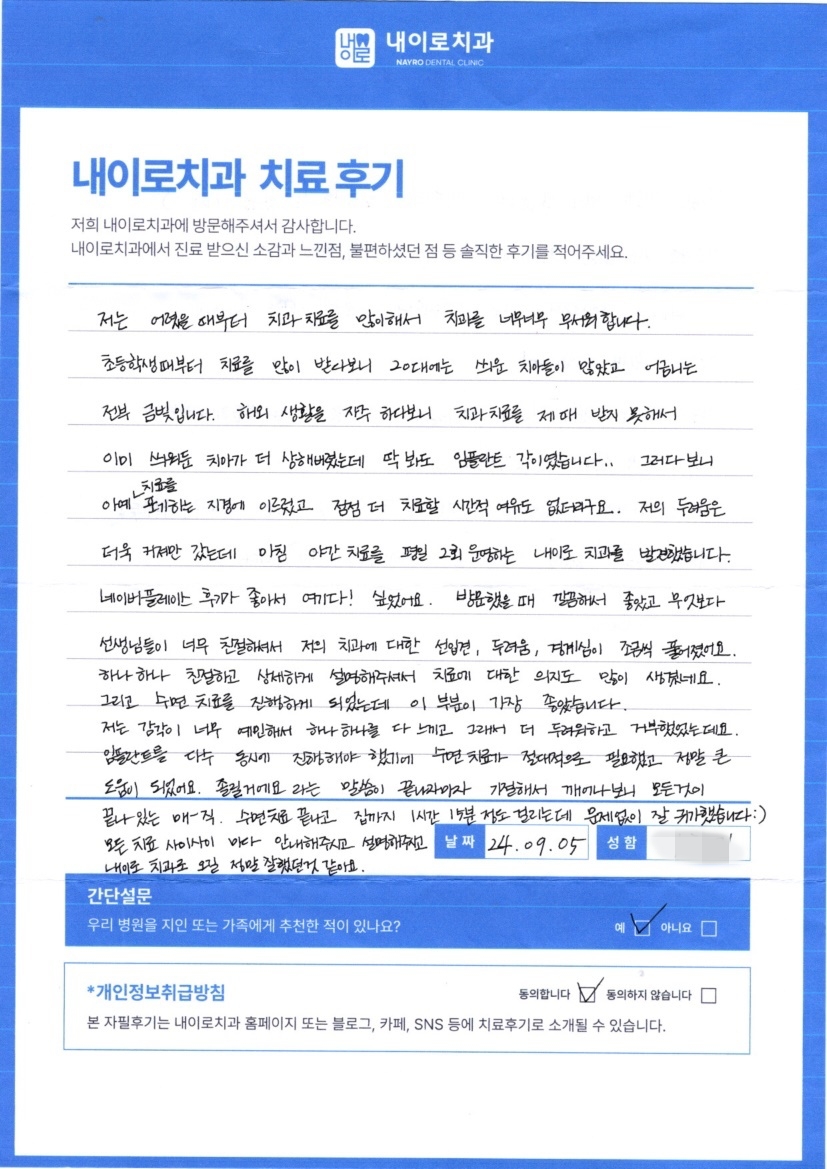 내이로
내이로치과
NAYRO DENTAL CLINIC
내이로치과 치료 후기
저희 내이로치과에 방문해주셔서 감사합니다.
내이로치과에서 진료 받으신 소감과 느낀점, 불편하셨던 점 등 솔직한 후기를 적어주세요.
저는 어렸을 때부터 치과 치료를 많이해서 치과를 너무너무 무서워합니다.
초등학생때부터 치료를 많이 받다보니 20대에는 씌운 치아들이 많았고 어금니는
전부 금빛입니다. 해외 생활을 자주 하다보니 치과 치료를 제때 받지 못해서
이미 씌워둔 치아가 더 상해버렸는데 딱 봐도 임플란트 각이였습니다.. 그러다보니
아예 치료를 포기하는 지경에 이르렀고 점점 더 치료할 시간적 여유도 없더라구요. 저의 두려움은
더욱 커져만 갔는데 마침 야간 치료를 평일 2회 운영하는 내이로 치과를 발견했습니다.
네이버플레이스 후기가 좋아서 여기다! 싶었어요. 방문했을 때 깔끔해서 좋았고 무엇보다
선생님들이 너무 친절하셔서 저의 치과에 대한 선입견, 두려움, 경계심이 조금씩 풀어졌어요.
하나 하나 친절하고 상세하게 설명해주셔서 치료에 대한 의지도 많이 생겼네요.
그리고 수면 치료를 진행하게 되었는데 이 부분이 가장 좋았습니다.
저는 감각이 너무 예민해서 하나 하나를 다 느끼고 그래서 더 두려워하고 거부했었는데요.
임플란트를 다수 동시에 진행해야 했기에 수면 치료가 절대적으로 필요했고 정말 큰
도움이 되었어요. 졸릴거에요 라는 말씀이 끝나자마자 기절해서 깨어나보니 모든것이
끝나 있는 매-직. 수면치료 끝나고 집까지 1시간 15분 정도 걸리는데 문제없이 잘 귀가했습니다:)
모든 치료 사이사이 마다 안내해주시고 설명해주시고
내이로 치과로 오길 정말 잘했던것 같아요.
날 짜 24.09.05 성 함
간단설문
우리 병원을 지인 또는 가족에게 추천한 적이 있나요? 예 아니요
*개인정보취급방침 동의합니다 동의하지 않습니다
본 자필후기는 내이로치과 홈페이지 또는 블로그, 카페, SNS 등에 치료후기로 소개될 수 있습니다.